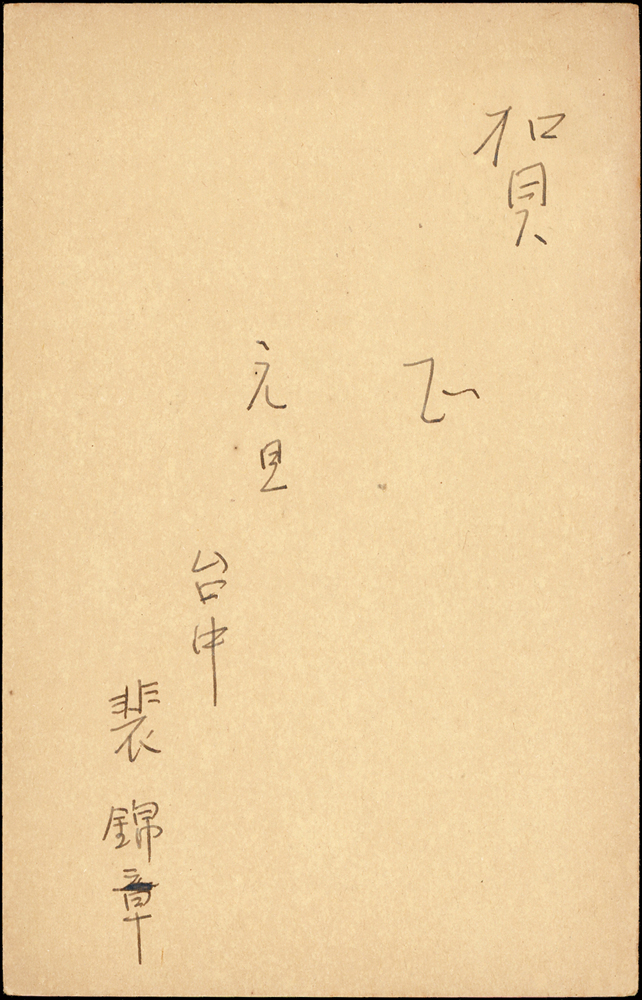 賀正
元旦
台中
裴錦章